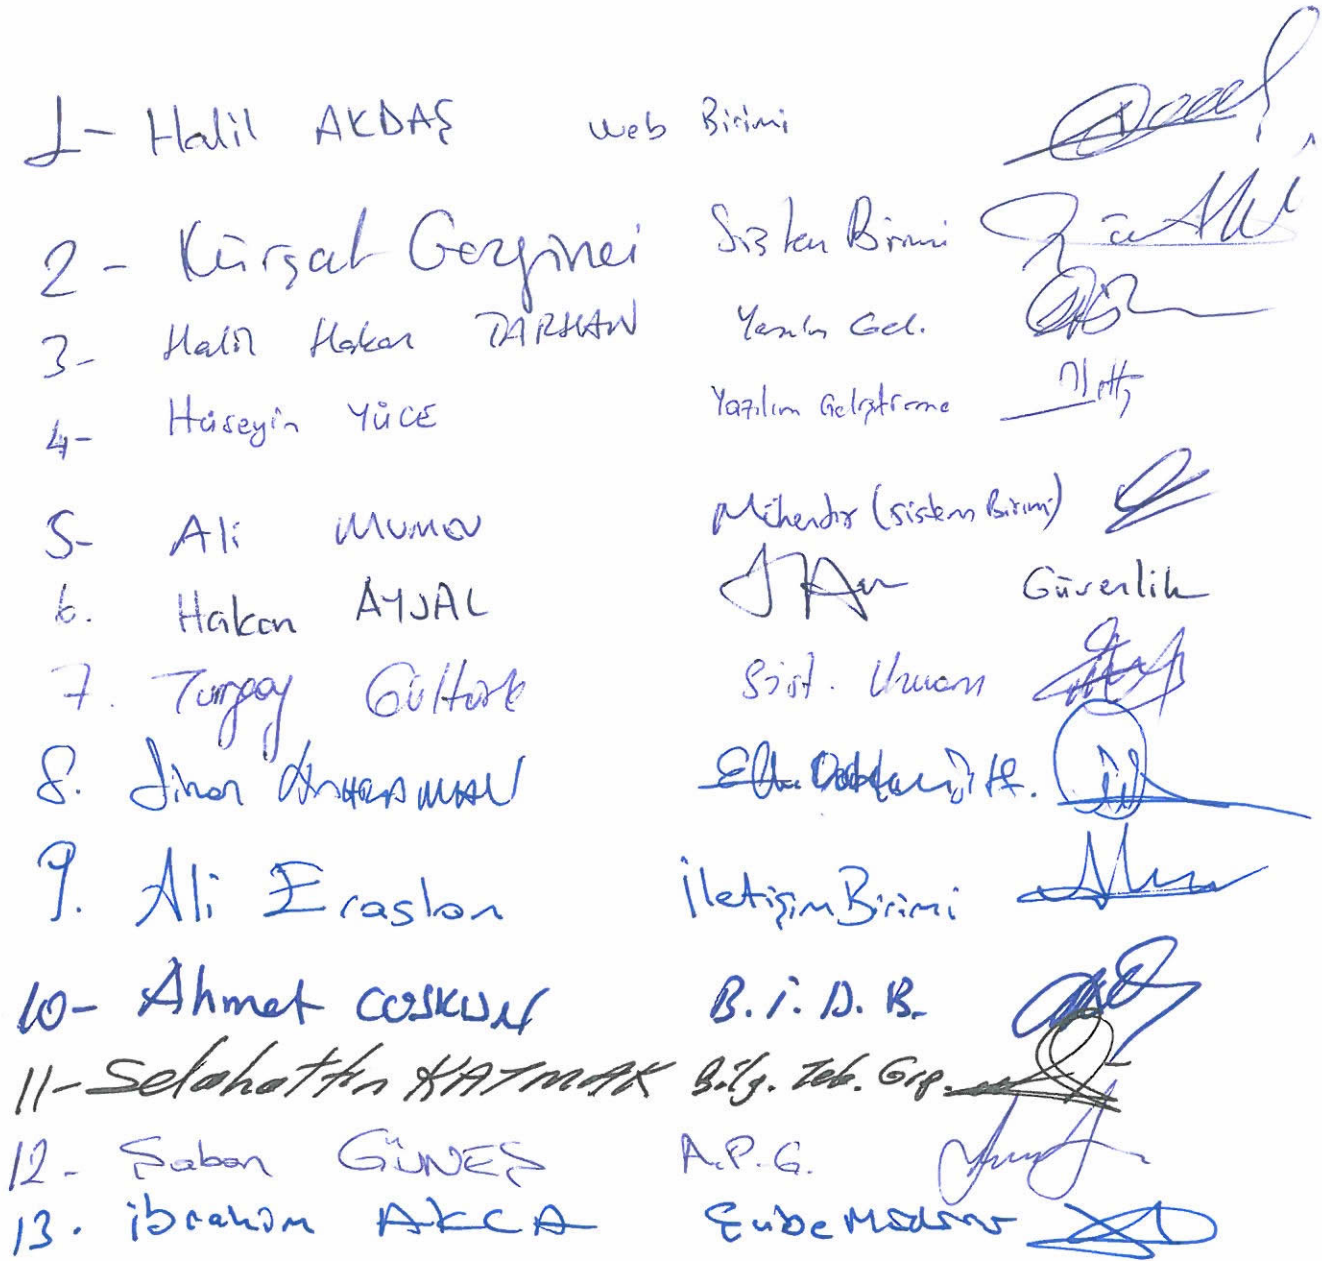 1- Halil AKDAŞ Web Birimi
2- Kürşat Gezginci Sistem Birimi
3- Halil Hakan TARHAN Yazılım Gel.
4- Hüseyin YÜCE Yazılım Geliştirme
5- Ali MUMCU Mühendis (Sistem Birimi)
6. Hakan AYSAL Güvenlik
7. Turgay Gültürk Sist. Uzmanı
8. KAHRAMAN
9. Ali Eraslan İletişim Birimi
10- Ahmet COŞKUN B.İ.D.B.
11- Selahattin KATMAK Bilg. Tek. Grp.
12- Şaban GÜNEŞ A.P.G.
13. İbrahim AKCA Şube Müdürü